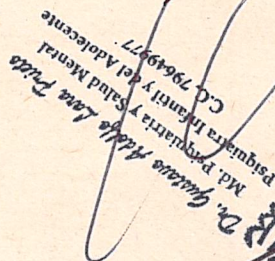 Dr. Gustavo Adolfo Lara Prieto
Md. Psiquiatria y Salud Mental
Psiquiatra Infantil y del Adolecente
C.C. 79649977